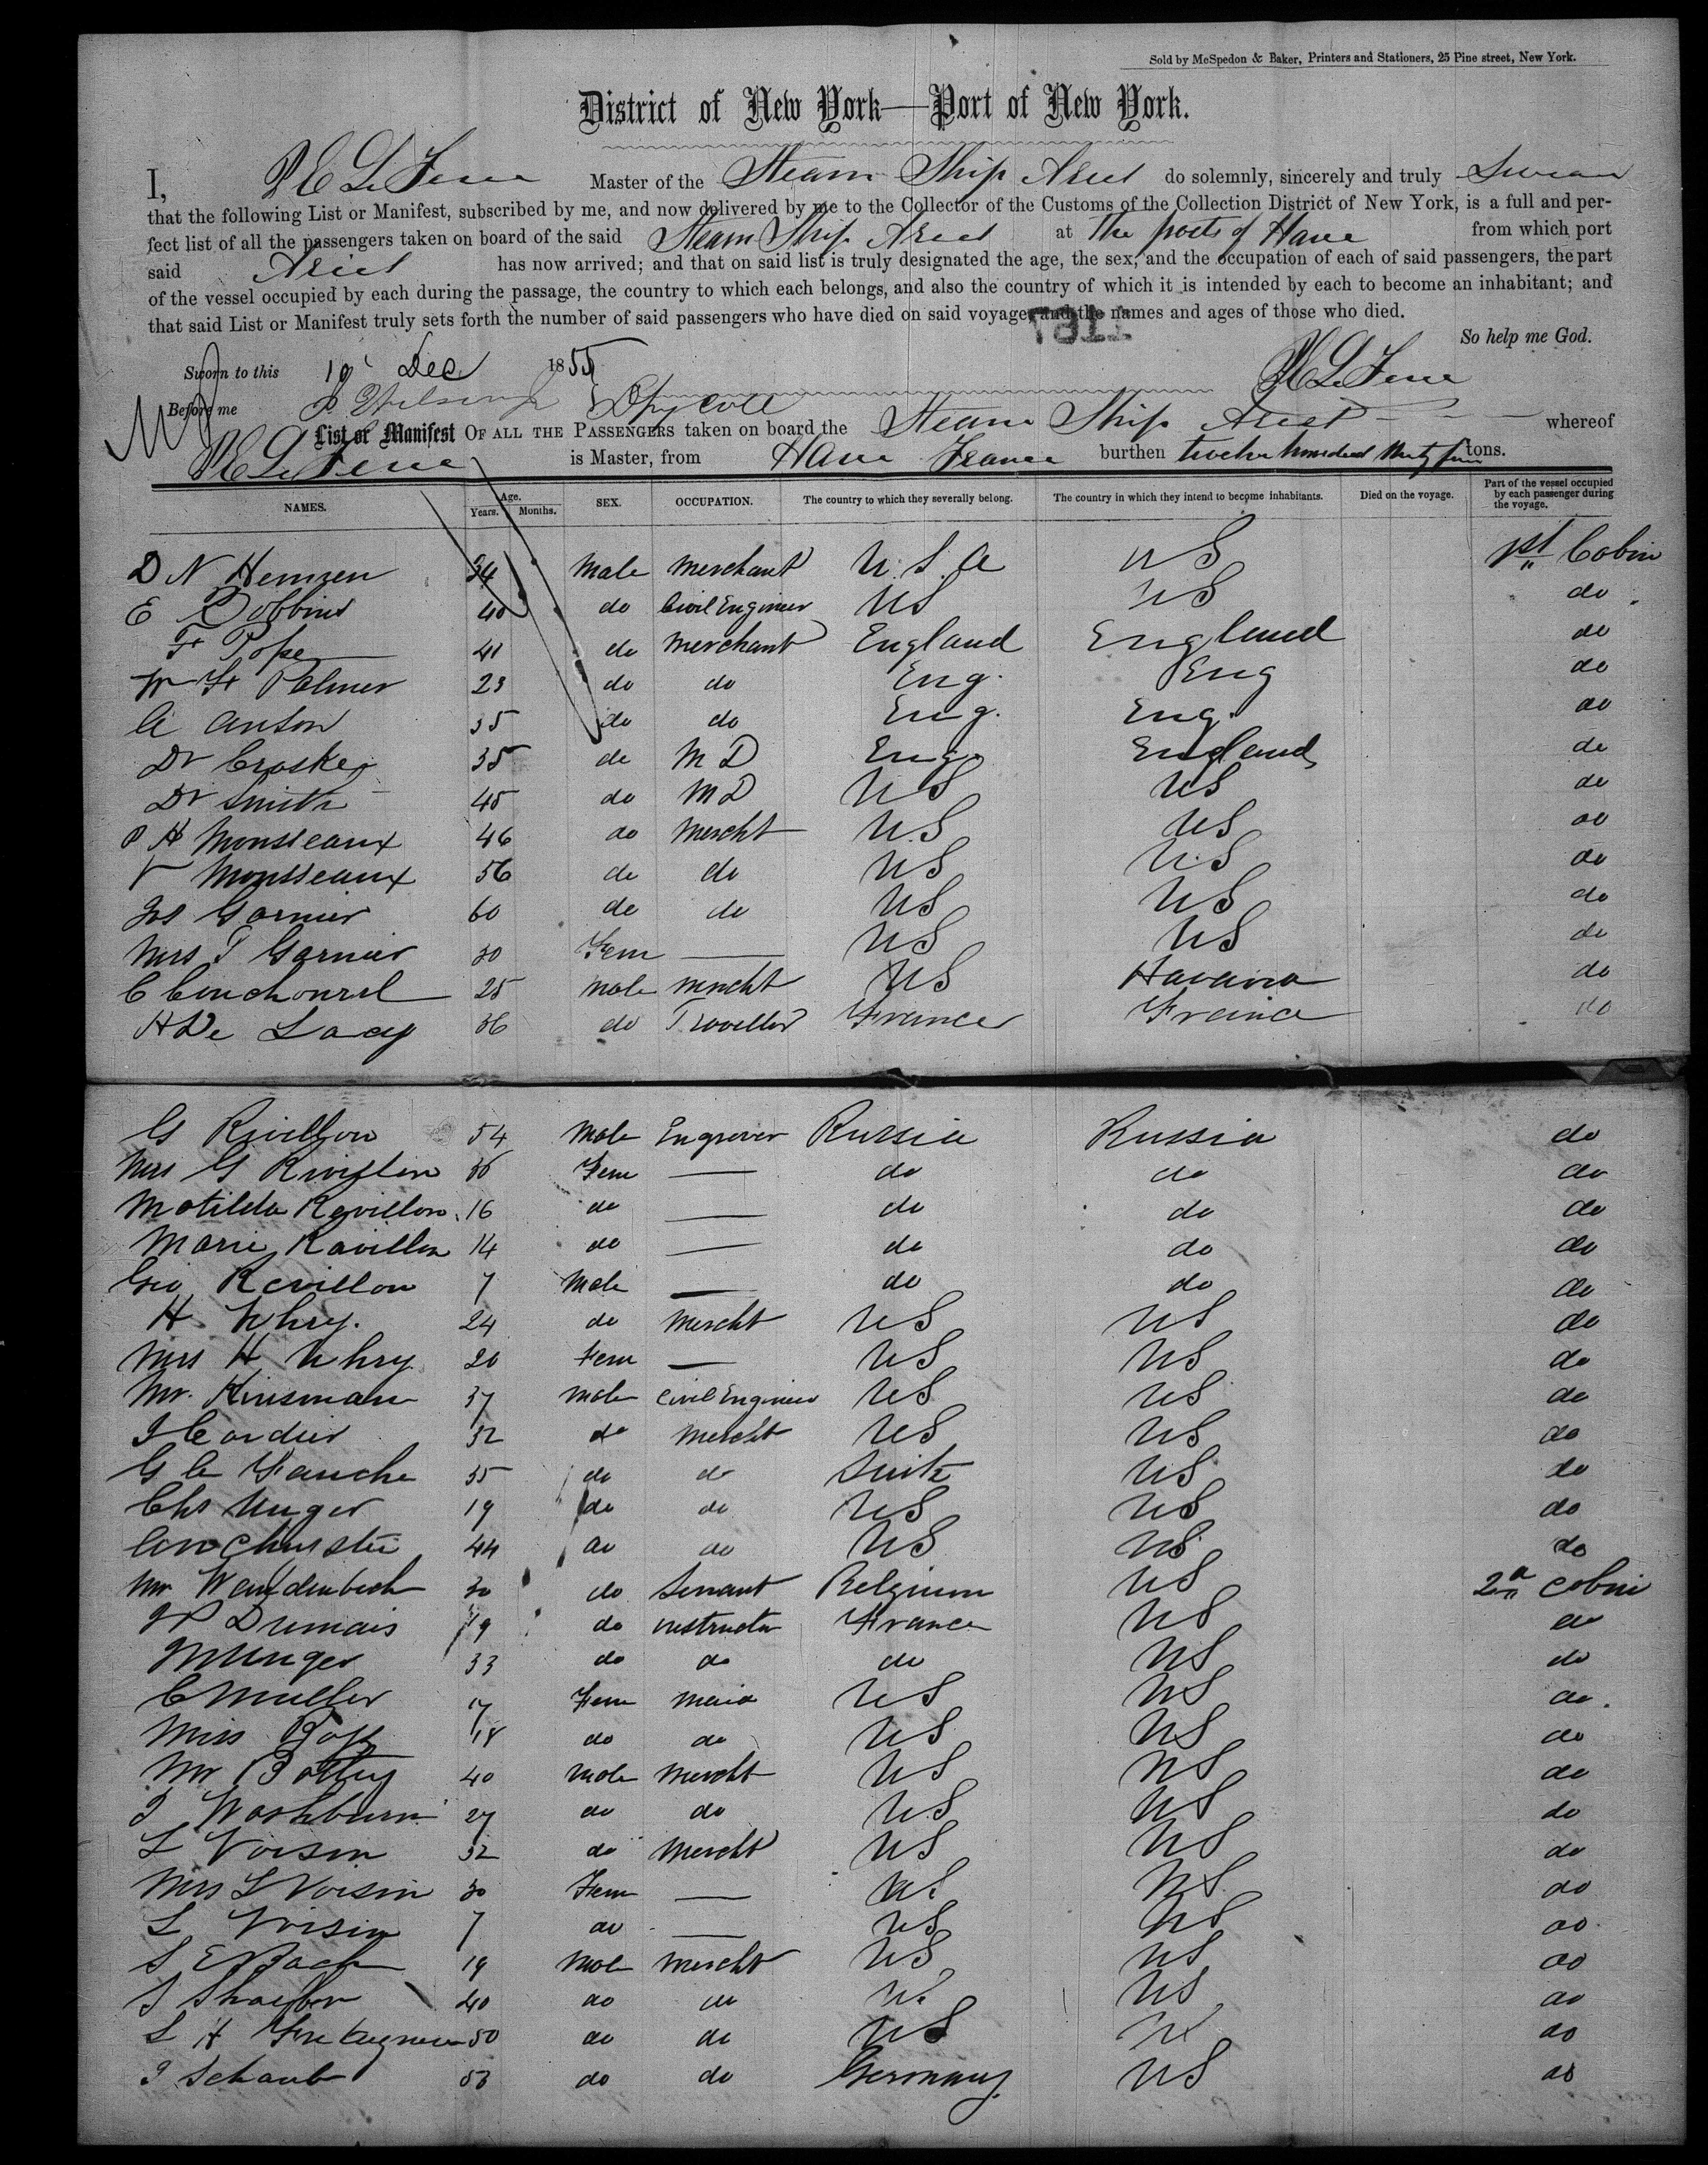 Sold by McSpedon & Baker, Printers and Stationers, 25 Pine street, New York.
District of New York—Port of New York.
I, P E Le Fevre Master of the Steam Ship Ariel do solemnly, sincerely and truly Swear
that the following List or Manifest, subscribed by me, and now delivered by me to the Collector of the Customs of the Collection District of New York, is a full and per-
fect list of all the passengers taken on board of the said Steam Ship Ariel at the port of Havre from which port
said Ariel has now arrived; and that on said list is truly designated the age, the sex, and the occupation of each of said passengers, the part
of the vessel occupied by each during the passage, the country to which each belongs, and also the country of which it is intended by each to become an inhabitant; and
that said List or Manifest truly sets forth the number of said passengers who have died on said voyage, and the names and ages of those who died.
So help me God.
Sworn to this 19 Dec 1855
P E Le Fevre
Before me Dpy Coll
List or Manifest OF ALL THE PASSENGERS taken on board the Steam Ship Ariel whereof
P E Le Fevre is Master, from Havre France burthen twelve hundred tons.
NAMES. Age. Years. Months. SEX. OCCUPATION. The country to which they severally belong. The country in which they intend to become inhabitants. Died on the voyage. Part of the vessel occupied by each passenger during the voyage.
D N Hemzen 34 Male Merchant U.S.A US 1st Cabin
E Dobbins 40 do Civil Engineer US US do
F Pope 41 do Merchant England England do
W F Palmer 23 do do Eng. Eng do
A Anton 35 do do Eng. Eng. do
Dr Croskey 35 do M D Eng. England do
Dr Smith 45 do M D US US do
P H Monsseaux 46 do Mercht US US do
V Monsseaux 56 do do US US do
Jos Garnier 60 do do US US do
Mrs J Garnier 30 Fem — US US do
C 25 Male Mercht US Havana do
H De Lacy 36 do Traveller France France do
G Revillon 54 Male Engraver Russia Russia do
Mrs G Revillon 36 Fem — do do do
Matilda Revillon 16 do — do do do
Marie Revillon 14 do — do do do
Geo Revillon 7 Male — do do do
H Uhry. 24 do Mercht US US do
Mrs H Uhry 20 Fem — US US do
Mr. Kinsman 37 Male Civil Engineer US US do
J Cordier 32 do Mercht US US do
G A Fauche 35 do do Switz US do
Chs Unger 19 do do US US do
44 do do US US do
Mr 30 do Servant Belgium US 2nd Cabin
P Dumais 19 do instructor France US do
M Unger 33 do do do US do
C Muller 17 Fem Maid US US do
Miss 18 do do US US do
Mr 40 Male Mercht US US do
J Washburn 27 do do US US do
L Voisin 32 do Mercht US US do
Mrs L Voisin 30 Fem — US US do
L Voisin 7 do — US US do
S E Bach 19 Male Mercht US US do
J 40 do do US US do
L H 50 do do US US do
J Schaub 53 do do Germany US do